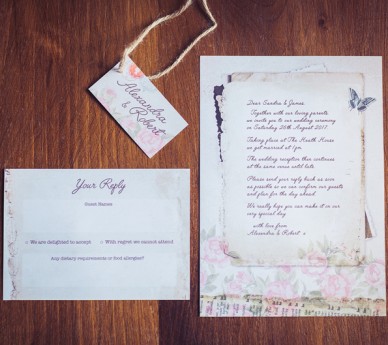 Alexandra
& Robert
Dear Sandra & James
Together with our loving parents
we invite you to our wedding ceremony
on Saturday 26th August 2017.
Taking place at The Heath House
to get married at 1pm.
The wedding reception then continues
at the same venue until late.
Please send your reply back as soon
as possible so we can confirm our guests
and plan for the day ahead.
We really hope you can make it on our
very special day.
with love from
Alexandra & Robert x
Your Reply
Guest Names
We are delighted to accept
With regret we cannot attend
Any dietary requirements or food allergies?